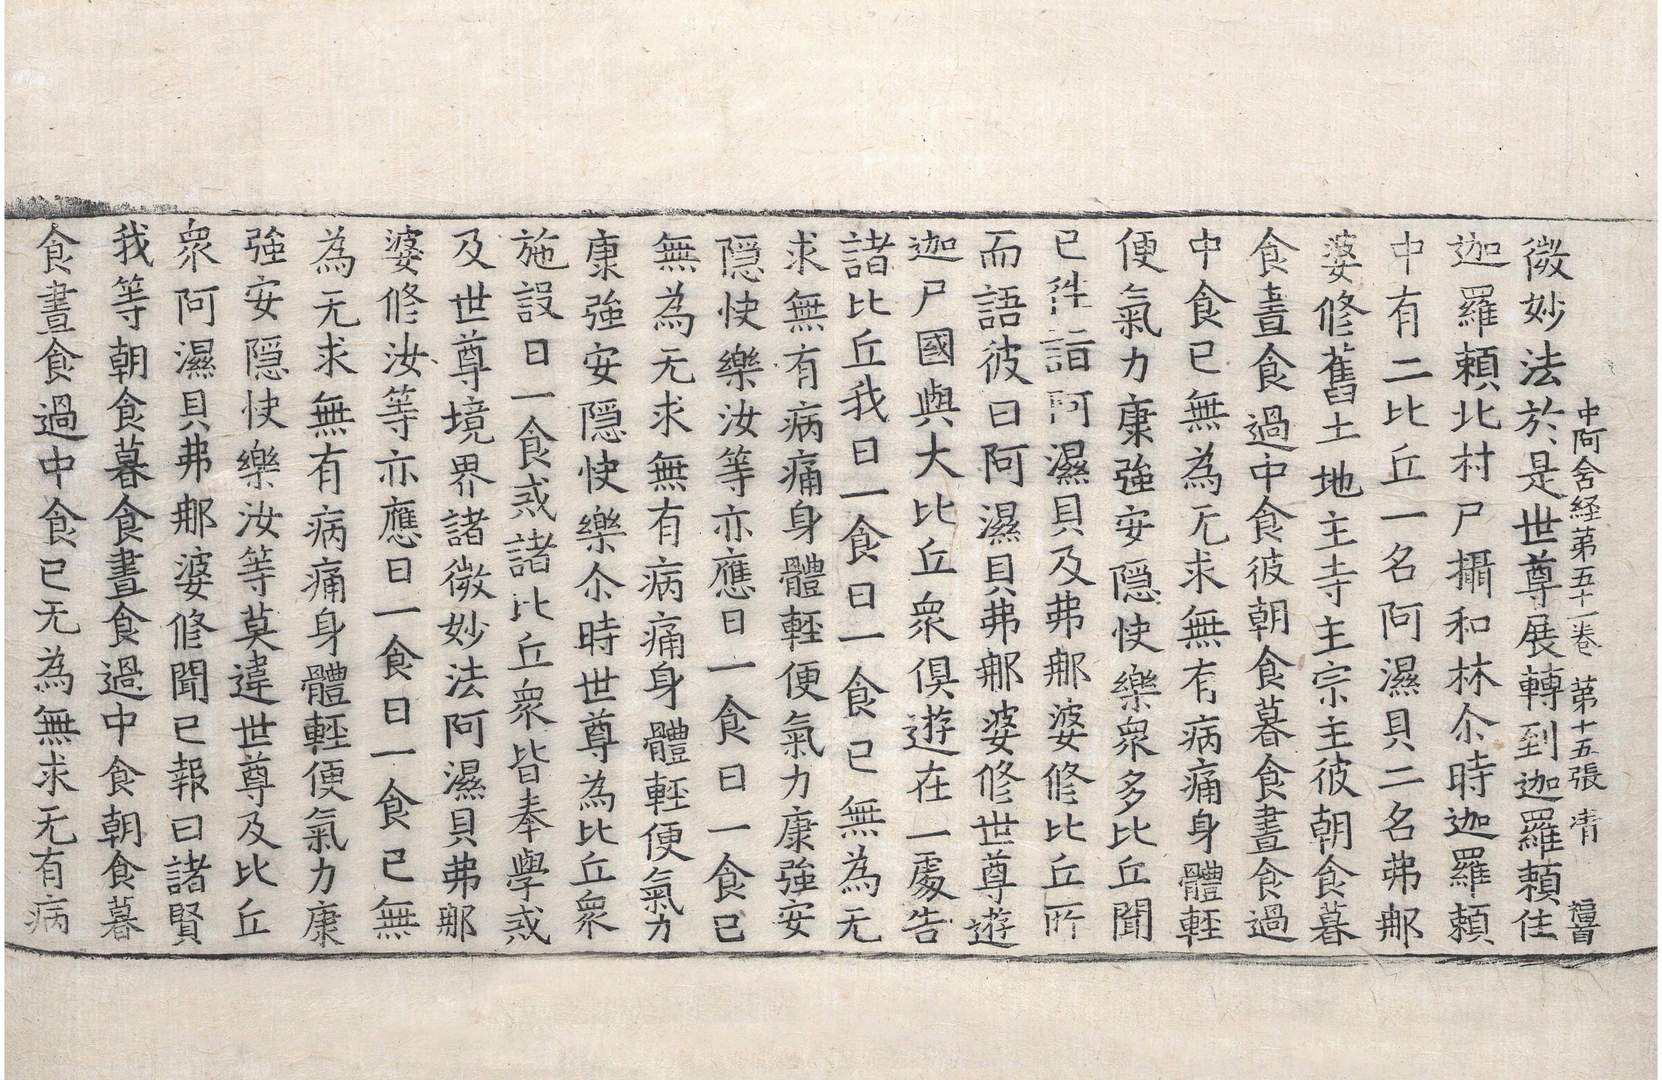 中阿含経苐五十一卷 苐十五張 凊
微妙法於是世尊展轉到迦羅賴住
迦羅賴比村尸攝和林尒時迦羅賴
中有二比丘一名阿濕貝二名弗𨚗
婆修舊土地主寺主宗主彼朝食暮
食晝食過中食彼朝食暮食晝食過
中食已無為无求無有病痛身體輕
便氣力康強安隠快樂衆多比丘聞
已往詣阿濕貝及弗𨚗婆修比丘所
而語彼曰阿濕貝弗𨚗婆修世尊遊
迦尸國與大比丘衆俱遊在一處告
諸比丘我曰一食曰一食已無為无
求無有病痛身體輕便氣力康強安
隠快樂汝等亦應日一食日一食已
無為无求無有病痛身體輕便氣力
康強安隠快樂尒時世尊為比丘衆
施設日一食或諸比丘衆皆奉學或
及世尊境界諸微妙法阿濕貝弗𨚗
婆修汝等亦應日一食日一食已無
為无求無有病痛身體輕便氣力康
強安隠快樂汝等莫違世尊及比丘
衆阿濕貝弗𨚗婆修聞已報曰諸賢
我等朝食暮食晝食過中食朝食暮
食晝食過中食已无為無求无有病